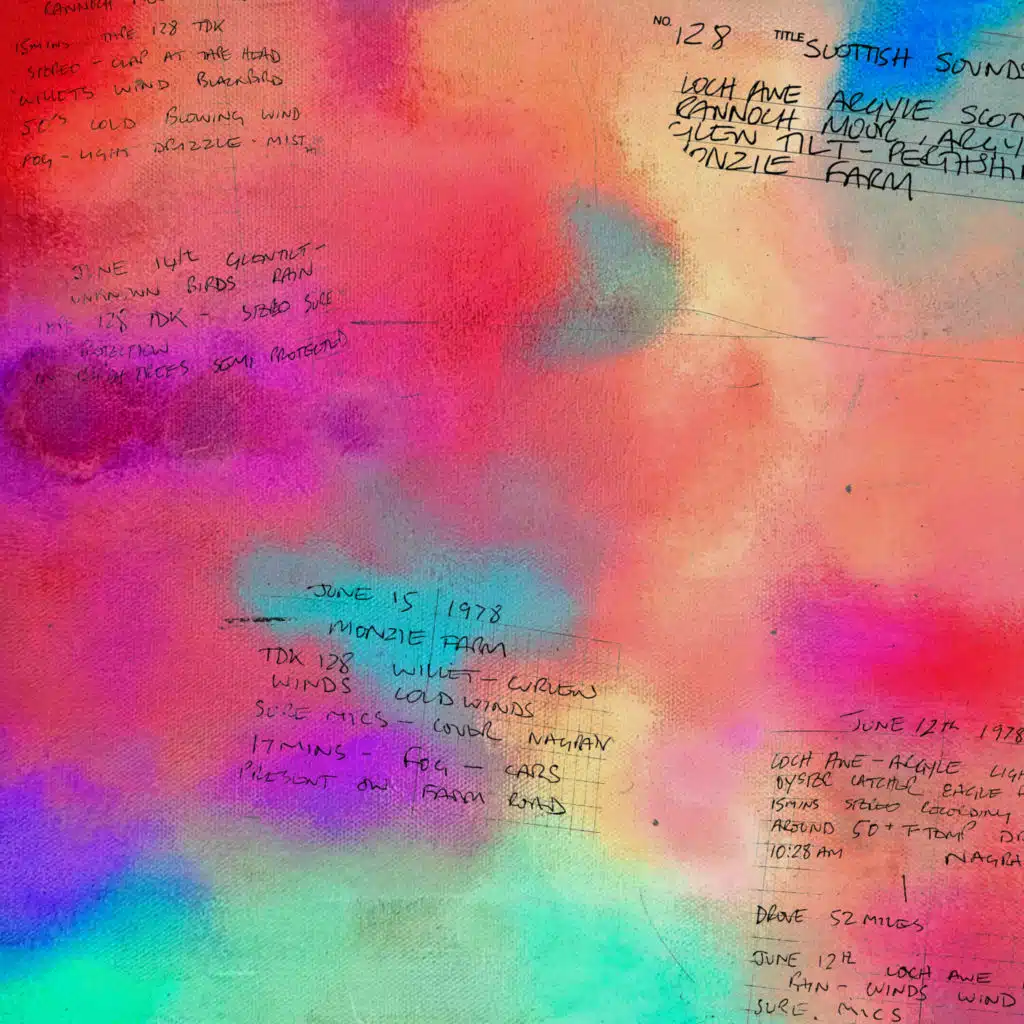 RANNOCH
15MINS - TAPE 128 TDK
STEREO - CLAP AT TAPE HEAD
WILLETS WIND BLACKBIRD
50'S COLD BLOWING WIND
FOG - LIGHT DRIZZLE - MIST
NO. 128 TITLE SCOTTISH SOUNDS
LOCH AWE ARGYLE SCOT
RANNOCH MOOR, ARGY
GLEN TILT - PERTHSHI
MONZIE FARM
JUNE 14th GLENTILT -
UNKNOWN BIRDS RAIN
TAPE 128 TDK - STEREO SURE
PROTECTION
TREES SEMI PROTECTED
JUNE 15 1978
MONZIE FARM
TDK 128 WILLET - CURLEW
WINDS COLD WINDS
SURE MICS - COVER NAGRAN
17MINS - FOG - CARS
PRESENT ON FARM ROAD
JUNE 12th 1978
LOCH AWE - ARGYLE LIGH
OYSTER CATCHER EAGLE
15MINS STEREO RECORDING
AROUND 50+ F TEMP DR
10:28 AM NAGRA
DROVE 52 MILES
JUNE 12th LOCH AWE
RAIN - WINDS WIND
SURE. MICS